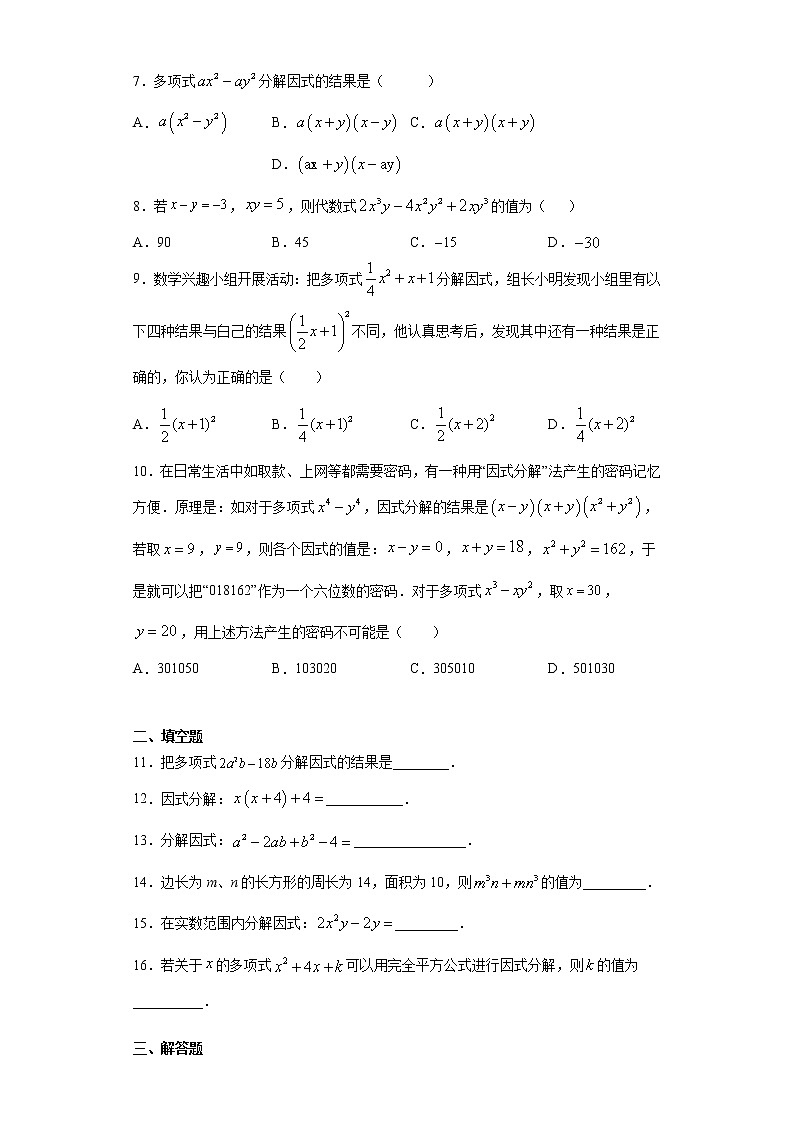 7.多项式ax²−ay²分解因式的结果是(   )
A.a(x²−y²)  B.a(x+y)(x−y)  C.a(x+y)(x+y)
D.(ax+y)(x−ay)
8.若x−y=−3,xy=5,则代数式2x³y−4x²y²+2xy³的值为(  )
A.90  B.45  C.−15  D.−30
9.数学兴趣小组开展活动:把多项式1/4x²+x+1分解因式,组长小明发现小组里有以
下四种结果与白己的结果(1/2x+1)²不同,他认真思考后,发现其中还有一种结果是正
确的,你认为正确的是(  )
A.1/2(x+1)²  B.1/4(x+1)²  C.1/2(x+2)²  D.1/4(x+2)²
10.在日常生活中如取款、上网等都需要密码,有一种用“因式分解”法产生的密码记忆
方便.原理是:如对于多项式x⁴−y⁴,因式分解的结果是(x−y)(x+y)(x²+y²),
若取x=9,y=9,则各个因式的值是:x−y=0,x+y=18,x²+y²=162,于
是就可以把“018162”作为一个六位数的密码.对于多项式x³−xy²,取x=30,
y=20,用上述方法产生的密码不可能是(  )
A.301050  B.103020  C.305010  D.501030
二、填空题
11.把多项式2a²b−18b分解因式的结果是________.
12.因式分解:x(x+4)+4=___________.
13.分解因式:a²−2ab+b²−4=________________.
14.边长为m、n的长方形的周长为14,面积为10,则m³n+mn³的值为_________.
15.在实数范围内分解因式:2x²y−2y=_________.
16.若关于x的多项式x²+4x+k可以用完全平方公式进行因式分解,则k的值为
__________.
三、解答题